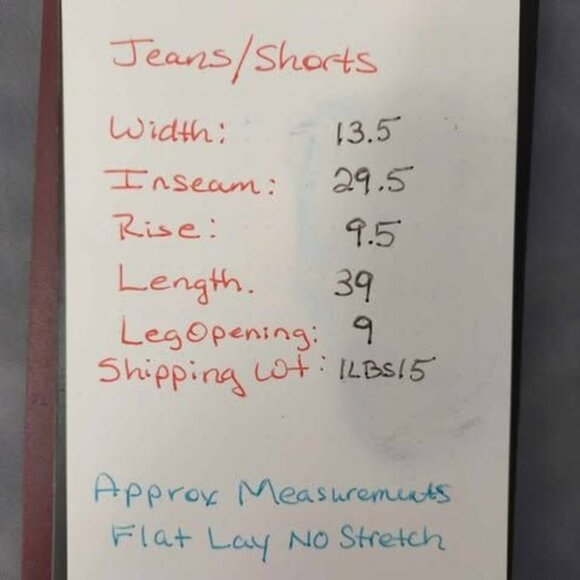 Jeans/Shorts
Width: 13.5
Inseam: 29.5
Rise: 9.5
Length. 39
Leg Opening: 9
Shipping Wt: 1LBS15
Approx Measurements
Flat Lay No Stretch